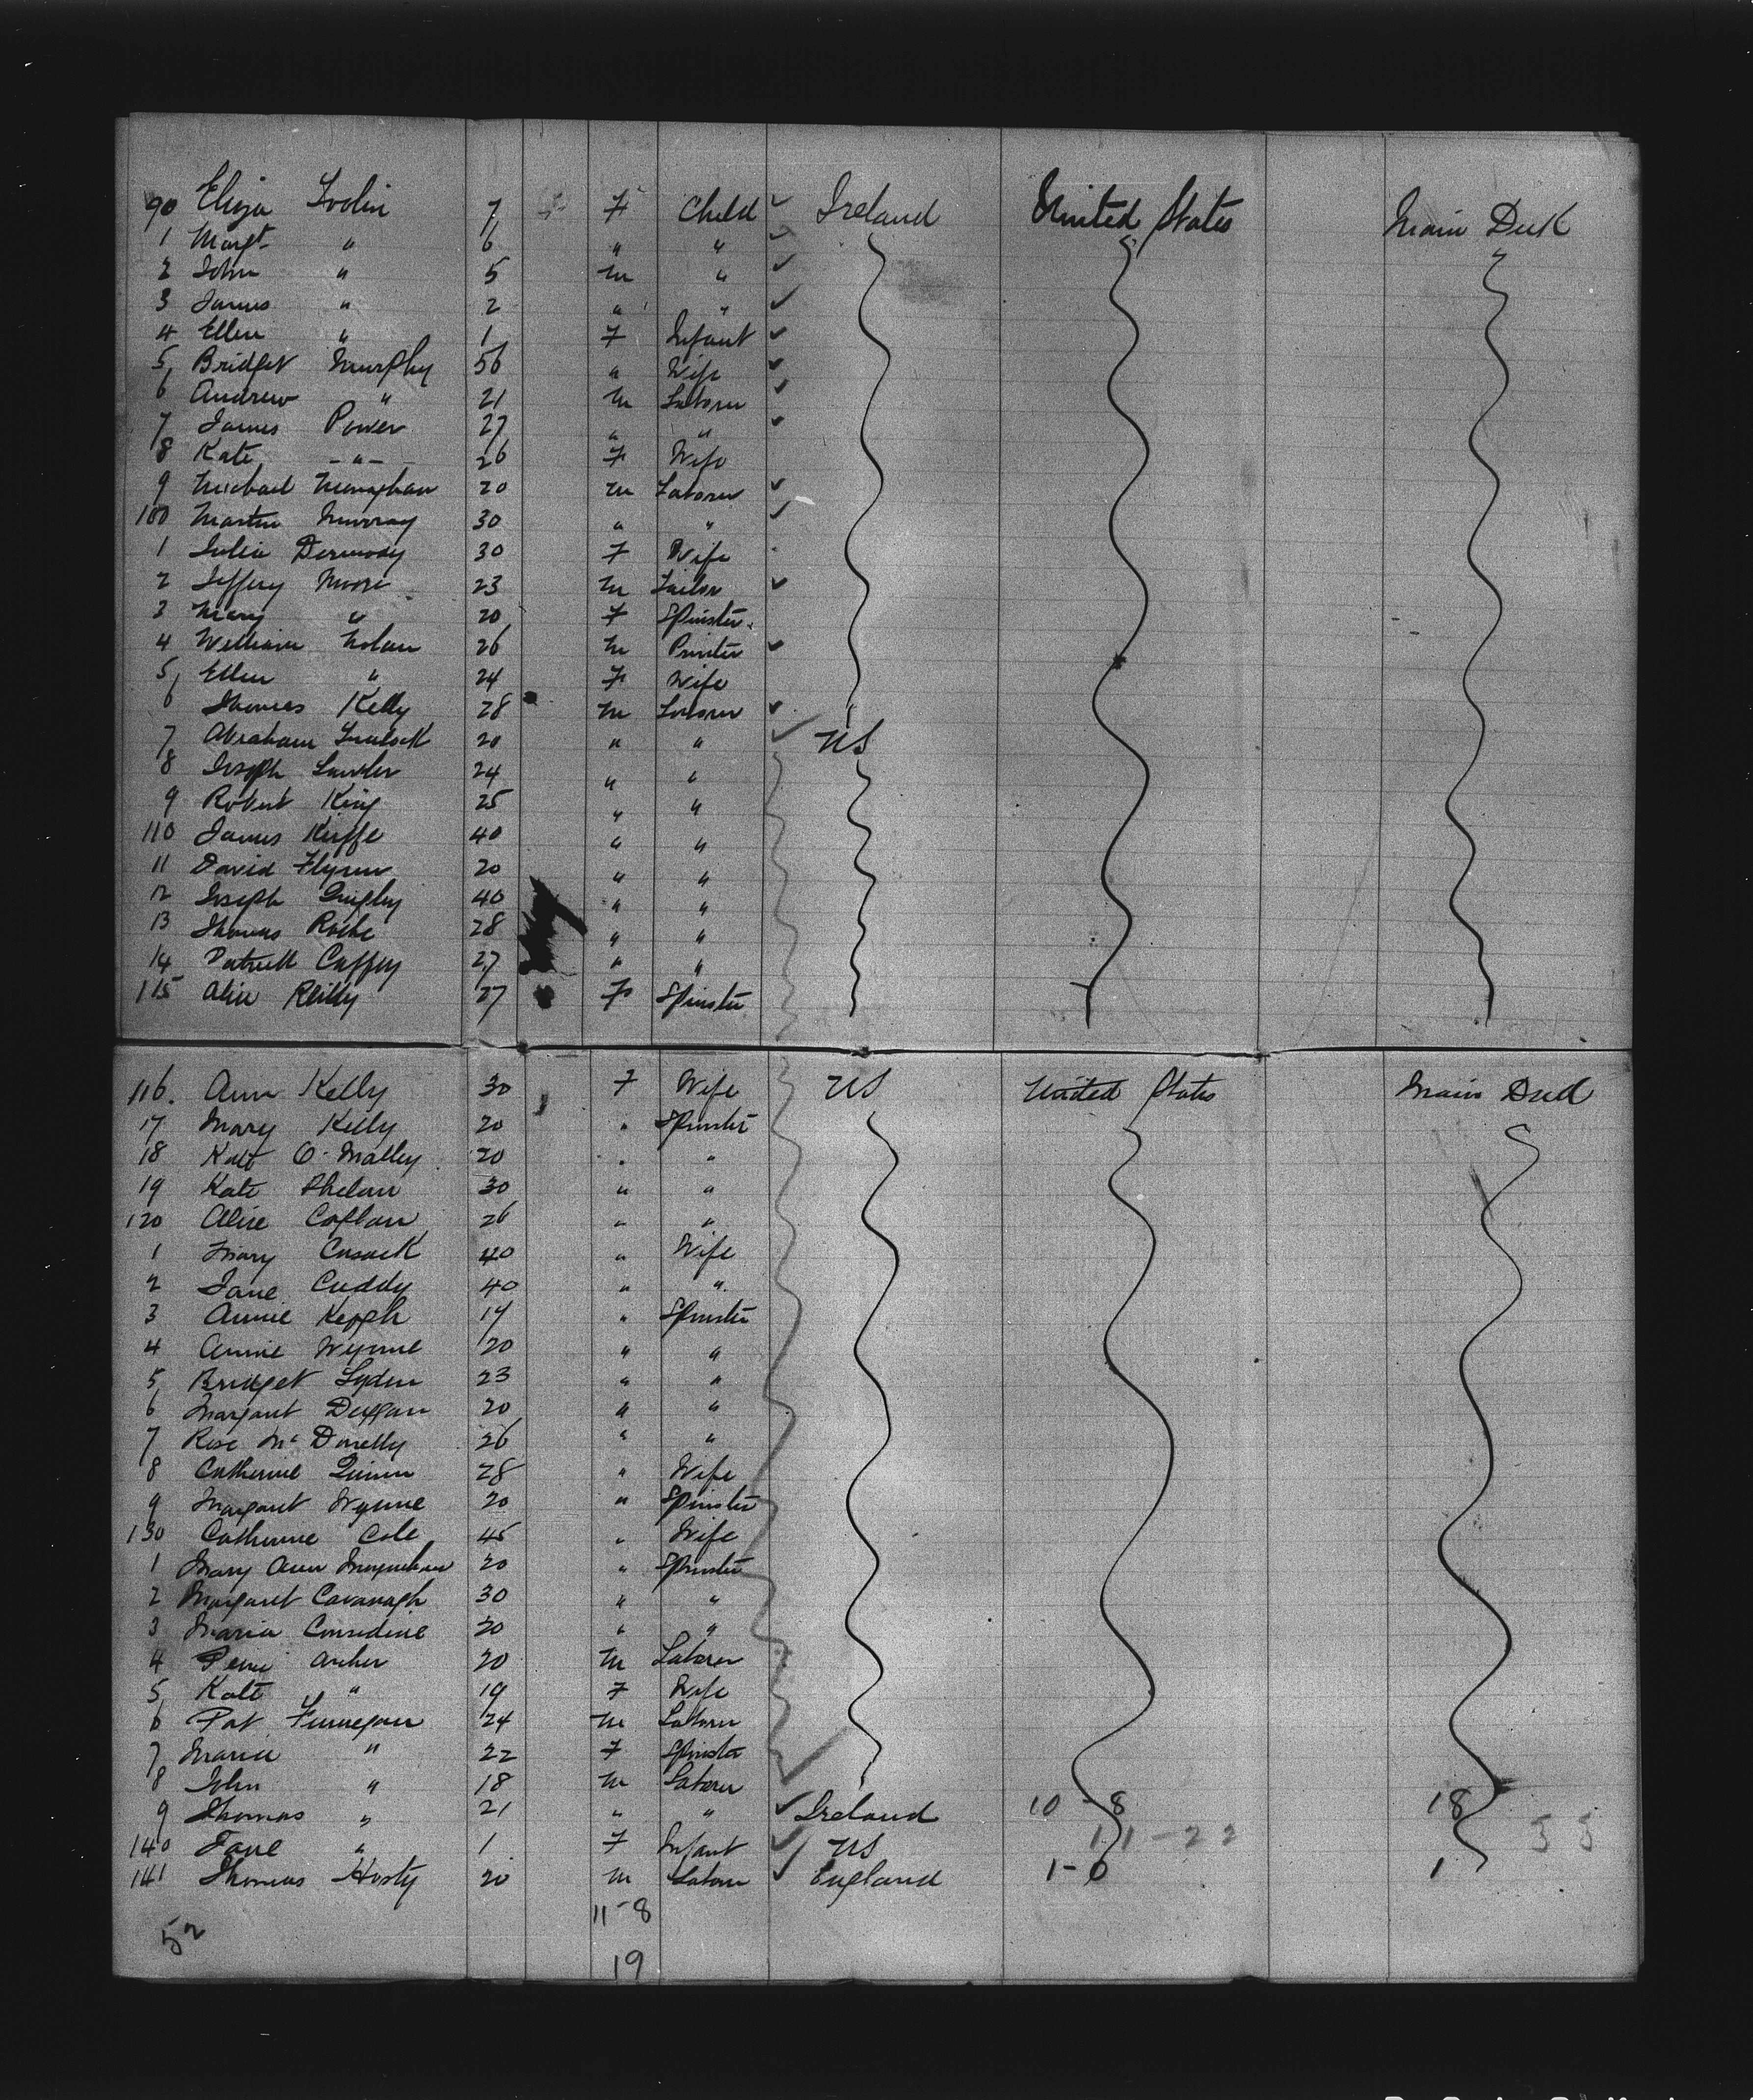 90 Eliza Toolin 7 F Child Ireland United States Main Deck
1 Margt " 6 " "
2 John " 5 M "
3 James " 2 " "
4 Ellen " 1 F Infant
5 Bridget Murphy 56 " Wife
6 Andrew " 21 M Laborer
7 James Power 27 " "
8 Kate -"- 26 F Wife
9 Michael Monaghan 20 M Laborer
100 Martin Murray 30 " "
1 Julia Dermody 30 F Wife
2 Jeffery Moore 23 M Tailor
3 Mary " 20 F Spinster
4 William Nolan 26 M Printer
5 Ellen " 24 F Wife
6 Thomas Kelly 28 M Laborer "
7 Abraham 20 " " US
8 Joseph Lawler 24 " "
9 Robert King 25 " "
110 James Keiffe 40 " "
11 David Flynn 20 " "
12 Joseph Quigley 40 " "
13 Thomas Roche 28 " "
14 Patrick Caffey 27 " "
115 Alice Reilly 27 F Spinster
116. Ann Kelly 30 F Wife US United States Main Deck
17 Mary Kelly 20 " Spinster
18 Kate O'Malley 20 " "
19 Kate Phelan 30 " "
120 Alice Coflan 26 " "
1 Mary Cusack 40 " Wife
2 Jane Cuddy 40 " "
3 Annie Keogh 17 " Spinster
4 Annie Wynne 20 " "
5 Bridget Lyden 23 " "
6 Margaret Duggan 20 " "
7 Rose McDonelly 26 " "
8 Catherine Quinn 28 " Wife
9 Margaret Wynne 20 " Spinster
130 Catherine Cole 45 " Wife
1 Mary Ann 20 " Spinster
2 Margaret Cavanagh 30 " "
3 Maria Considine 20 " "
4 Archer 20 M Laborer
5 Kate " 19 F Wife
6 Pat Finnegan 24 M Laborer
7 Maria " 22 F Spinster
8 John " 18 M Laborer
9 Thomas " 21 " " Ireland 10-8 18
140 Jane " 1 F Infant US 11-22 55
141 Thomas Hosty 20 M Laborer England 1-0 1
11-8
52
19